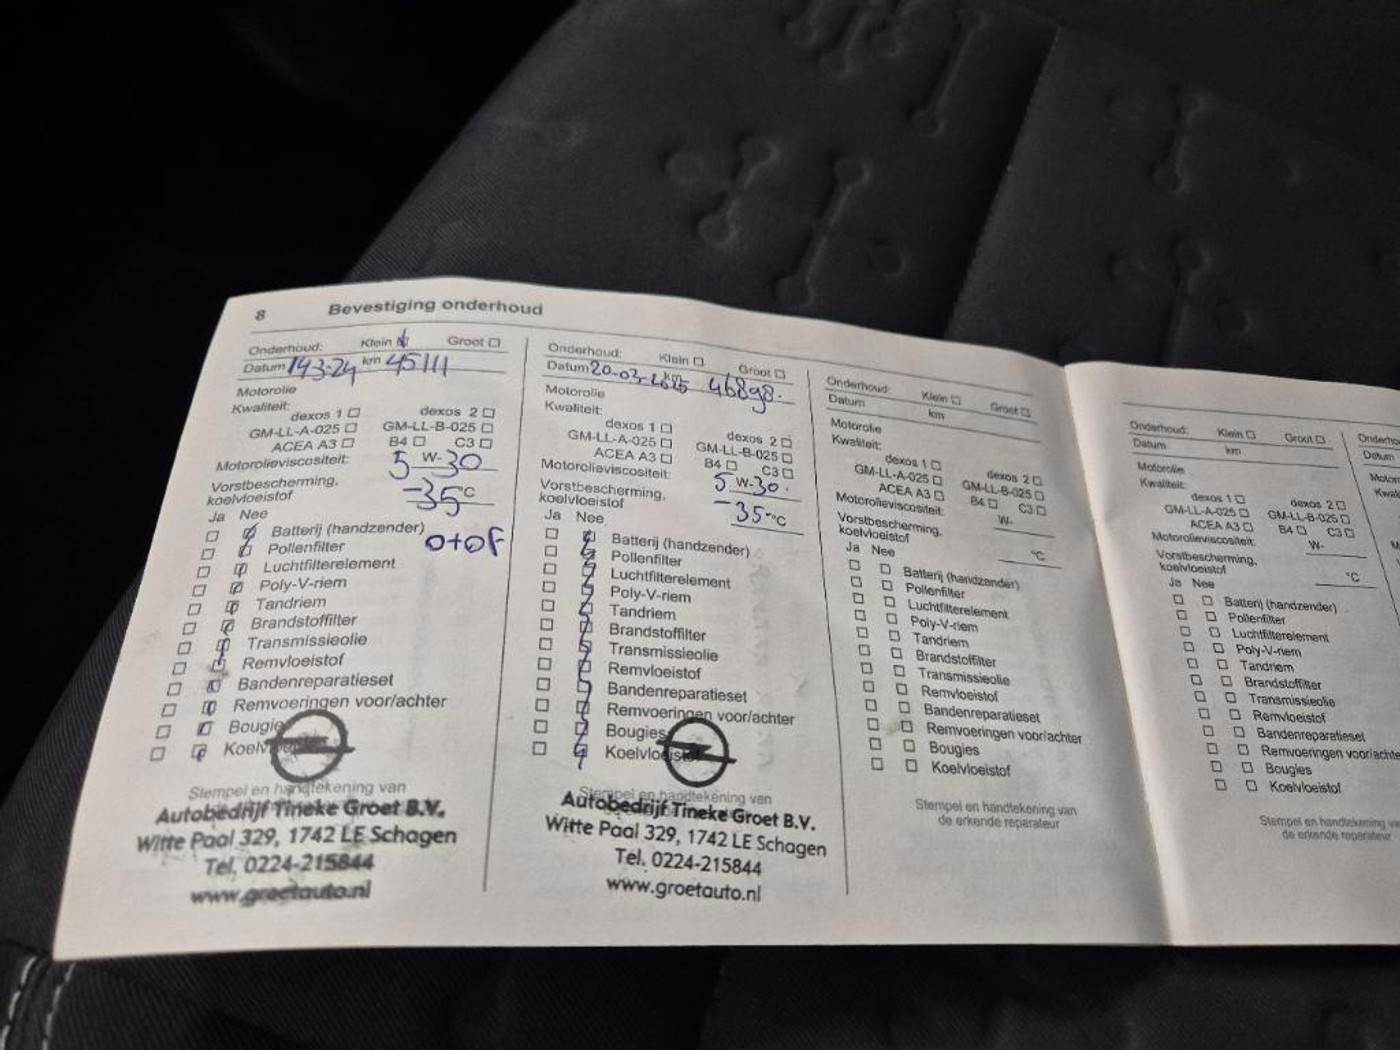 8 Bevestiging onderhoud
Onderhoud: Klein Groot
Datum 14-3-24 km 45111
Motorolie
Kwaliteit:
dexos 1 dexos 2
GM-LL-A-025 GM-LL-B-025
ACEA A3 B4 C3
Motorolieviscositeit: 5 W- 30
Vorstbescherming, koelvloeistof -35 °C
Ja Nee
Batterij (handzender)
Pollenfilter O+OF
Luchtfilterelement
Poly-V-riem
Tandriem
Brandstoffilter
Transmissieolie
Remvloeistof
Bandenreparatieset
Remvoeringen voor/achter
Bougies
Koelvloeistof
Stempel en handtekening van
Autobedrijf Tineke Groet B.V.
Witte Paal 329, 1742 LE Schagen
Tel. 0224-215844
www.groetauto.nl
Onderhoud: Klein Groot
Datum 20-03-2025 km 46898.
Motorolie
Kwaliteit:
dexos 1 dexos 2
GM-LL-A-025 GM-LL-B-025
ACEA A3 B4 C3
Motorolieviscositeit: 5 W-30.
Vorstbescherming, koelvloeistof -35 °C
Ja Nee
Batterij (handzender)
Pollenfilter
Luchtfilterelement
Poly-V-riem
Tandriem
Brandstoffilter
Transmissieolie
Remvloeistof
Bandenreparatieset
Remvoeringen voor/achter
Bougies
Koelvloeistof
Stempel en handtekening van
Autobedrijf Tineke Groet B.V.
Witte Paal 329, 1742 LE Schagen
Tel. 0224-215844
www.groetauto.nl
Onderhoud: Klein Groot
Datum km
Motorolie
Kwaliteit:
dexos 1 dexos 2
GM-LL-A-025 GM-LL-B-025
ACEA A3 B4 C3
Motorolieviscositeit: W-
Vorstbescherming, koelvloeistof °C
Ja Nee
Batterij (handzender)
Pollenfilter
Luchtfilterelement
Poly-V-riem
Tandriem
Brandstoffilter
Transmissieolie
Remvloeistof
Bandenreparatieset
Remvoeringen voor/achter
Bougies
Koelvloeistof
Stempel en handtekening van
de erkende reparateur
Onderhoud: Klein Groot
Datum km
Motorolie
Kwaliteit:
dexos 1 dexos 2
GM-LL-A-025 GM-LL-B-025
ACEA A3 B4 C3
Motorolieviscositeit: W-
Vorstbescherming, koelvloeistof °C
Ja Nee
Batterij (handzender)
Pollenfilter
Luchtfilterelement
Poly-V-riem
Tandriem
Brandstoffilter
Transmissieolie
Remvloeistof
Bandenreparatieset
Remvoeringen voor/achte
Bougies
Koelvloeistof
Stempel en handtekening va
de erkende reparateur
Onderho
Datum
Motor
Kwal